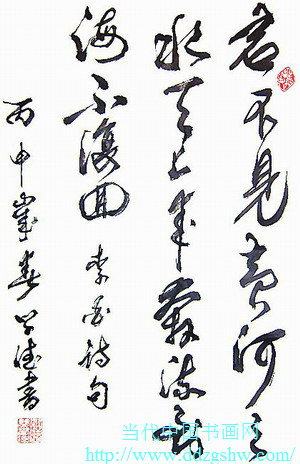 君不見黄河之
水天上來奔流到
海不復回 李白詩句
丙申歲春書
当代中国书画网
http://www.ddzgshw.com/